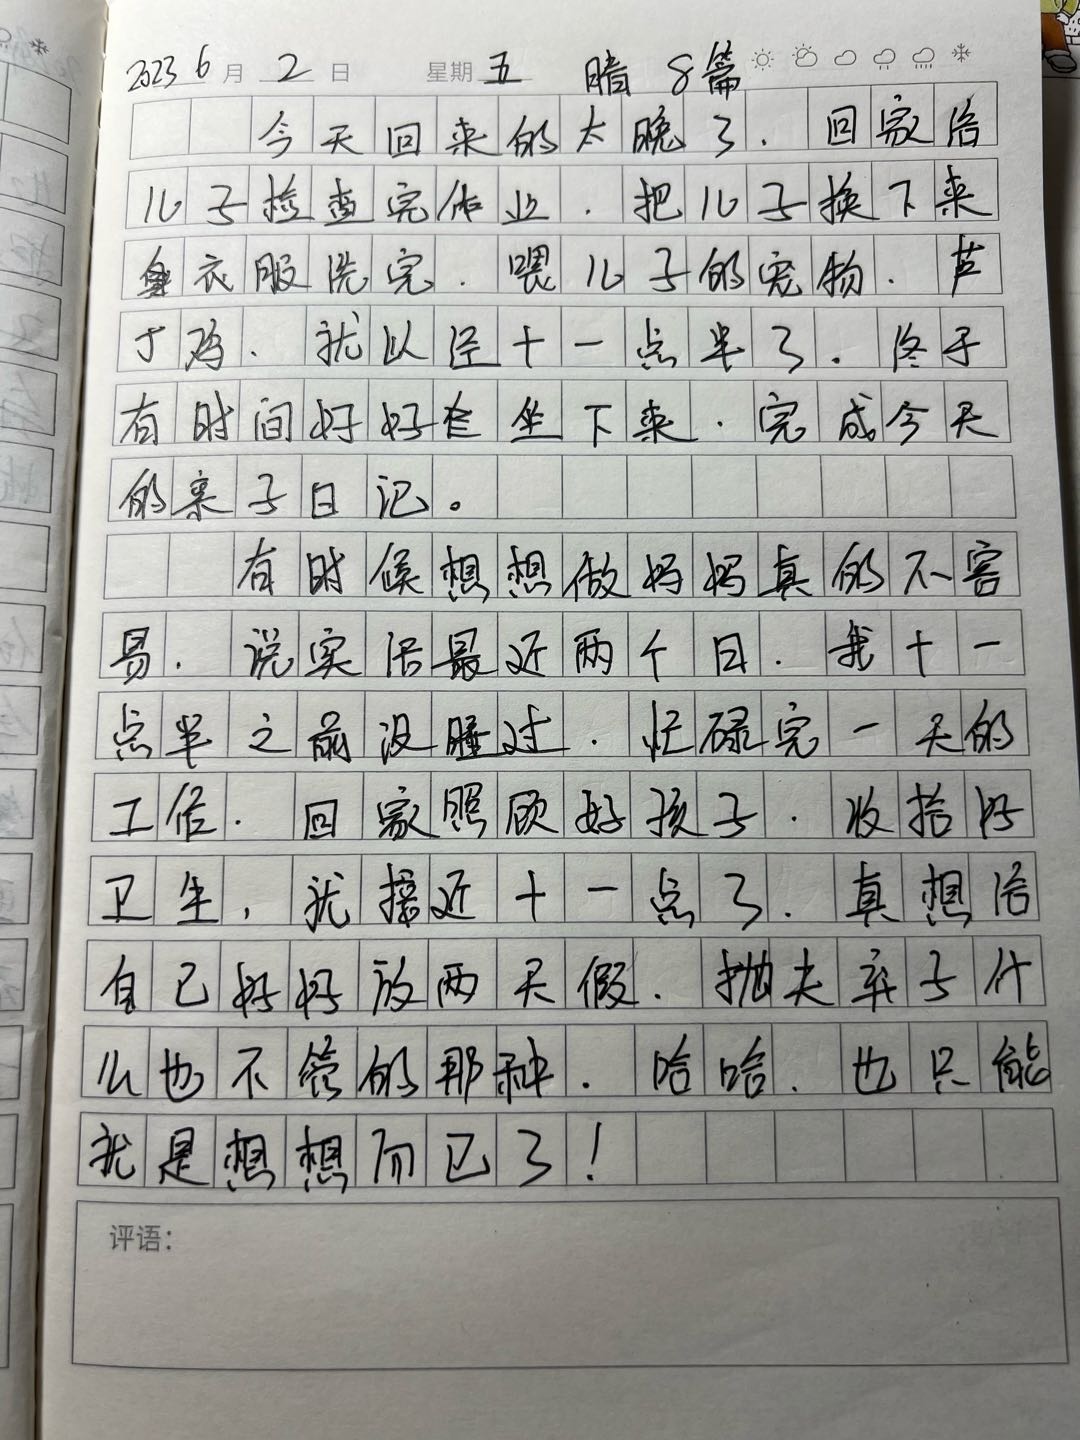 2023 6月 2 日 星期 五 晴 8篇
今天回来的太晚了.回家给
儿子检查完作业.把儿子换下来
衣服洗完.喂儿子的宠物.芦
丁鸡.就以经十一点半了.终于
有时间好好坐下来.完成今天
的亲子日记。
有时候想想做妈妈真的不容
易.说实话最近两个日.我十一
点半之前没睡过.忙碌完一天的
工作.回家照顾好孩子.收拾好
卫生,就接近十一点了.真想给
自己好好放两天假.抛夫弃子什
么也不管的那种.哈哈.也只能
就是想想而已了!
评语: